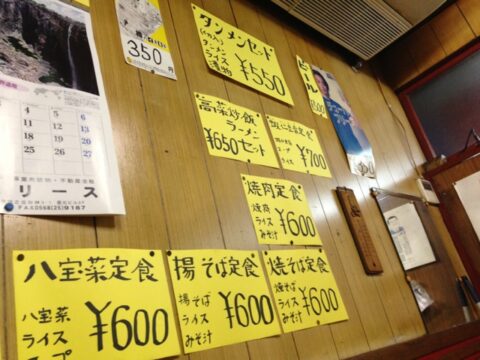 350円
タンメンセット
タンメン
ライス
漬物
¥550
ビール
高菜炒飯
ラーメン
¥650セット
¥700
焼肉定食
焼肉
ライス
みそ汁
¥600
八宝菜定食
八宝菜
ライス
スープ
¥600
揚そば定食
揚そば
ライス
みそ汁
¥600
焼そば定食
焼そば
ライス
みそ汁
¥600
4 5 6
11 12 13
18 19 20
25 26 27
リース